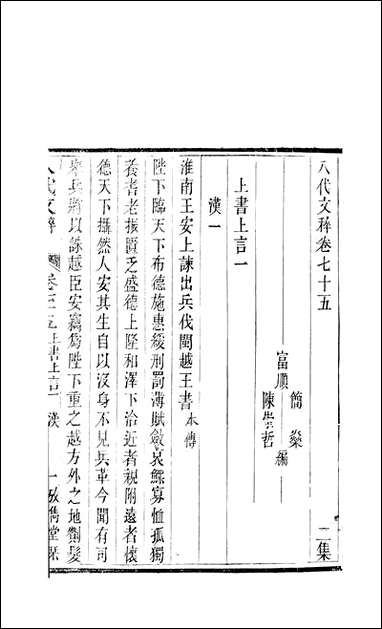 八代文粹卷七十五 二集
富順 簡燊 陳崇哲 編
上書上言一
漢一
淮南王安上諫出兵伐閩越王書 本傳
陛下臨天下布德施惠緩刑罰薄賦斂哀鰥寡恤孤獨
養耆老振匱乏盛德上隆和澤下洽近者親附遠者懷
德天下攝然人安其生自以沒身不見兵革今聞有司
舉兵將以誅越臣安竊爲陛下重之越方外之地劗髮
八代文粹 卷七十五上書上言一 漢 一